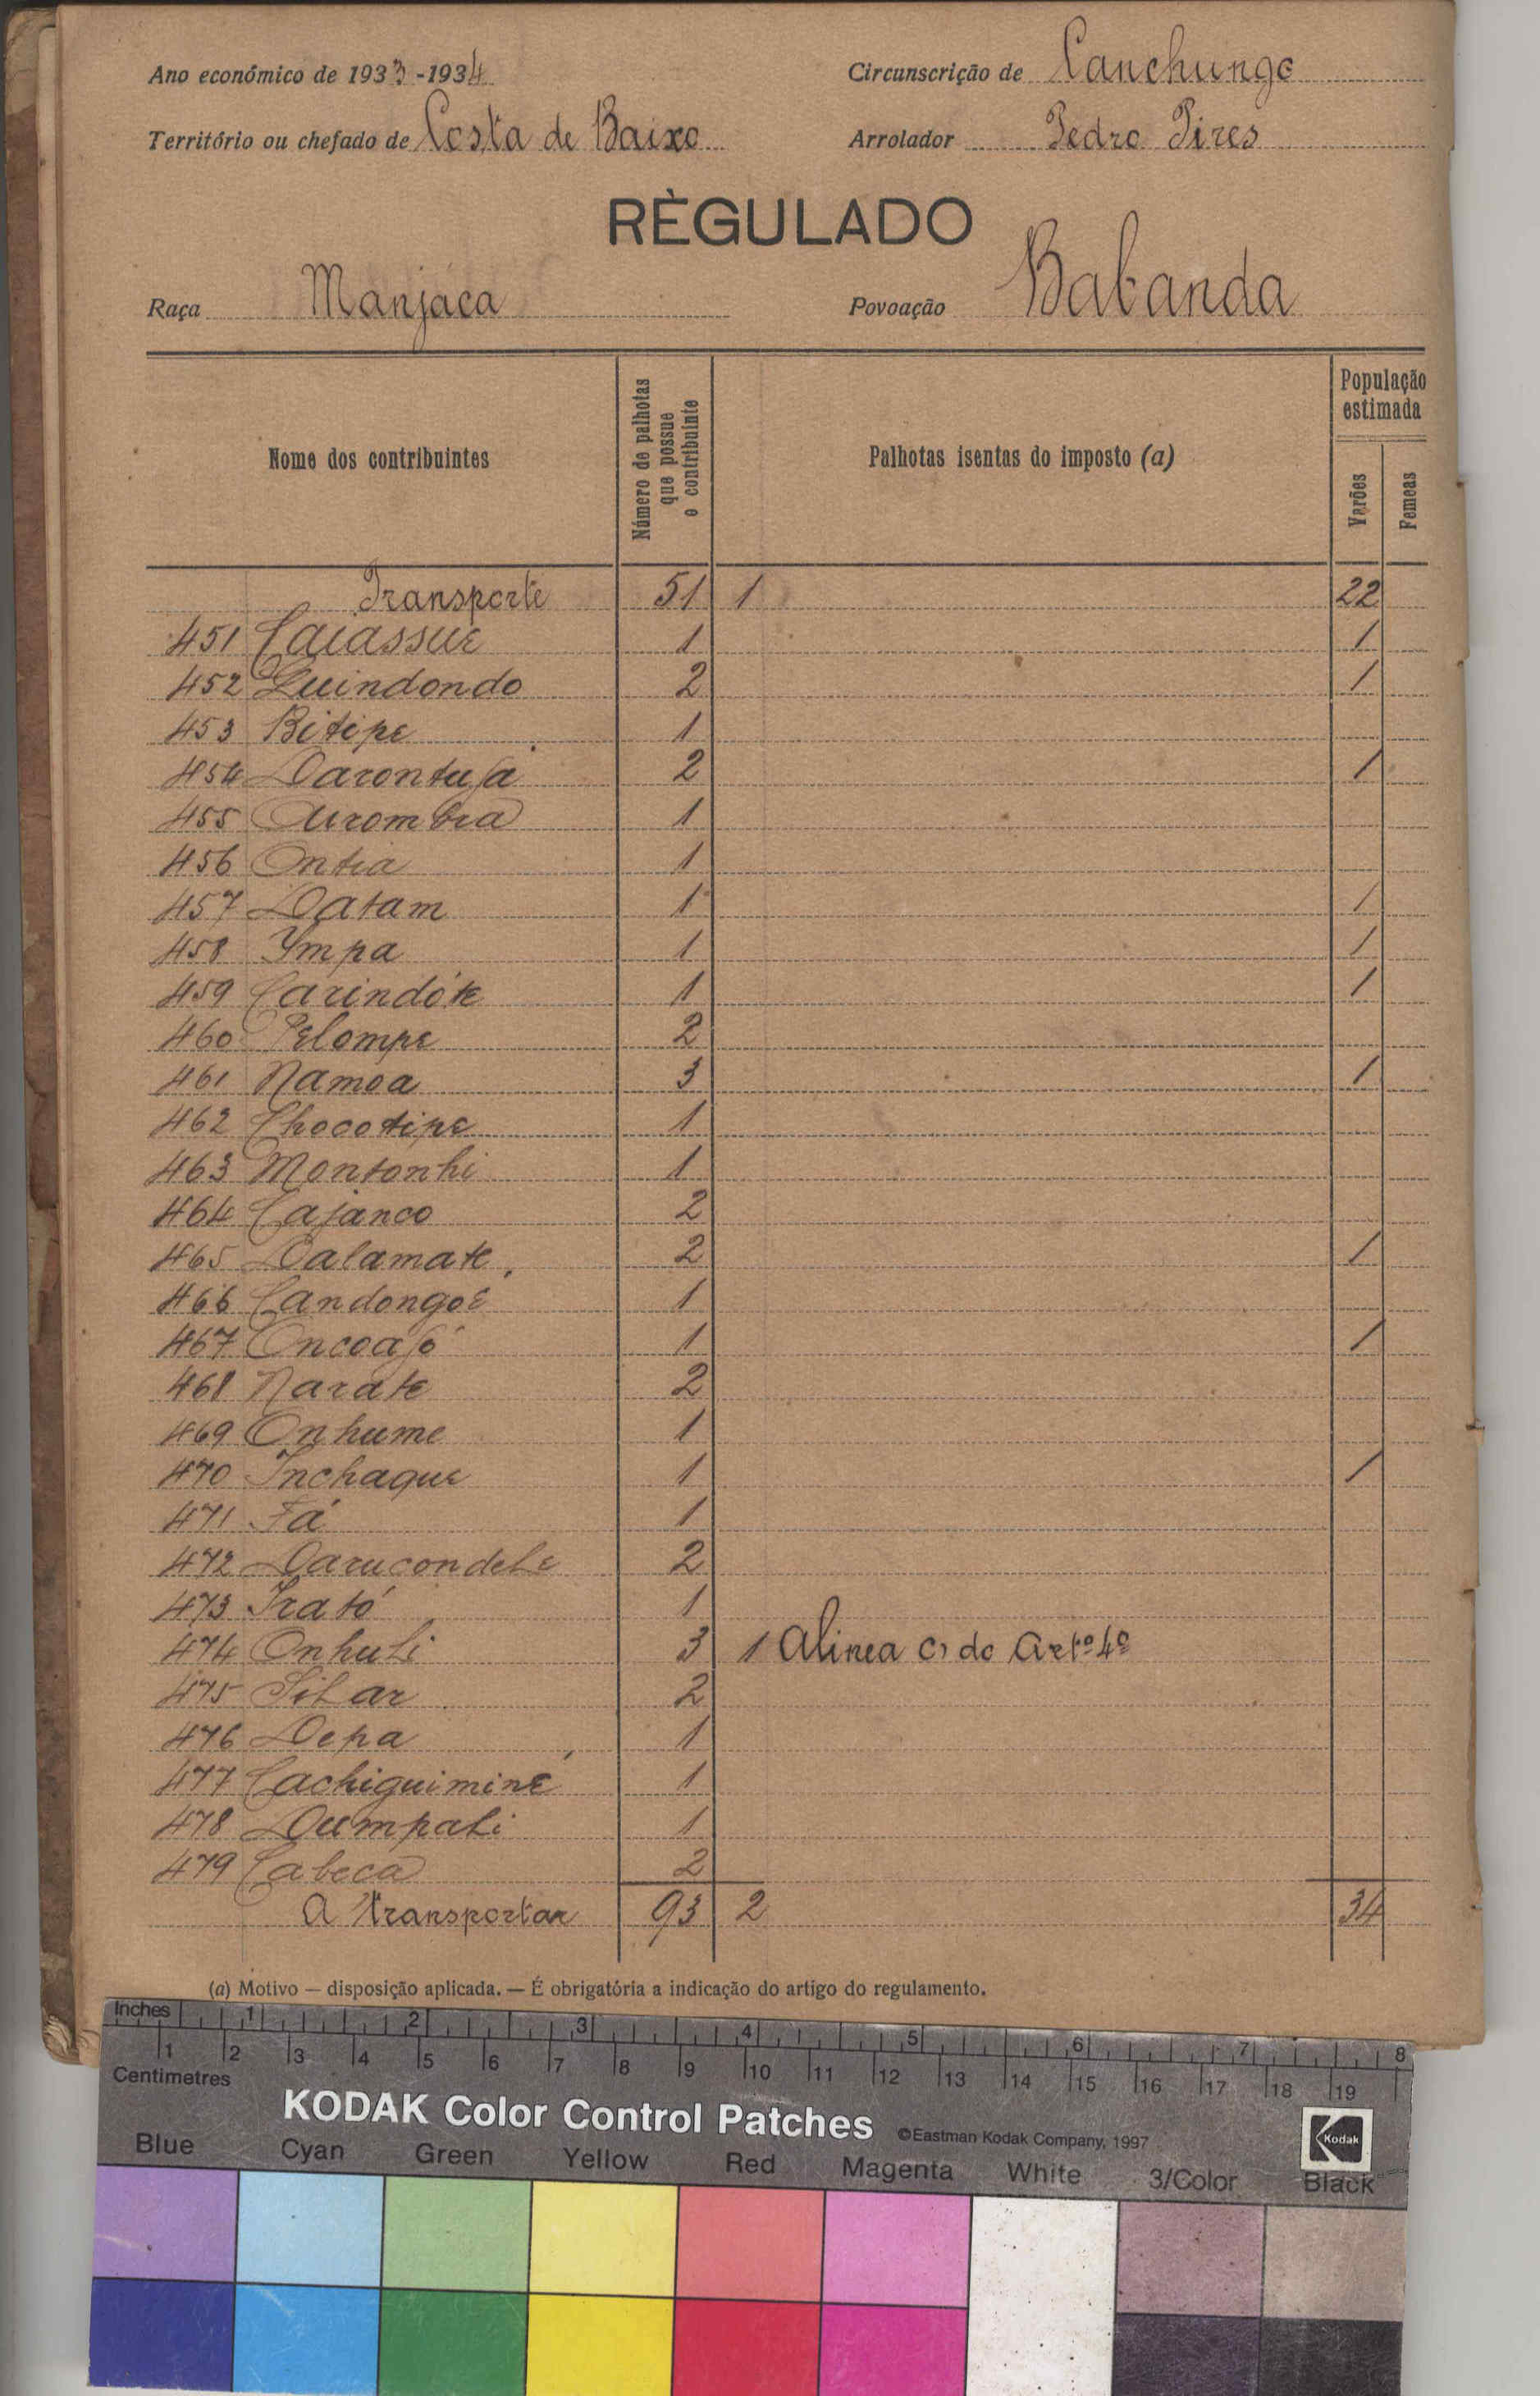 Ano económico de 1933-1934 Circunscrição de Canchungo
Território ou chefado de Costa de Baixo Arrolador Pedro Pires
RÈGULADO
Raça Manjáca Povoação Babanda
Nome dos contribuintes
Número de palhotas que possue o contribuinte
Palhotas isentas do imposto (a)
População estimada
Varões
Femeas
Transporte 51 1 22
451 Caiassue 1 1
452 Quindondo 2 1
453 Bitipe 1
454 Darontujá 2 1
455 Aurombia 1
456 Ontia 1
457 Datam 1 1
458 Ympa 1 1
459 Carindóte 1 1
460 Pelompe 2
461 Namoa 3 1
462 Chocotipe 1
463 Montonhi 1
464 Cajanco 2
465 Dalamate 2 1
466 Candongoé 1
467 Oncoajó 1 1
468 Narate 2
469 Onhume 1
470 Inchaque 1 1
471 Fá 1
472 Darucondele 2
473 Irató 1
474 Onhuli 3 1 Alinea c) do Artº 4º
475 Silar 2
476 Depa 1
477 Cachiguiminé 1
478 Dumpali 1
479 Cabeca 2
A transportar 93 2 34
(a) Motivo — disposição aplicada. — É obrigatória a indicação do artigo do regulamento.
Inches 1 2 3 4 5 6 7 8
1 2 3 4 5 6 7 8 9 10 11 12 13 14 15 16 17 18 19
Centimetres
KODAK Color Control Patches ©Eastman Kodak Company, 1997 Kodak
Blue Cyan Green Yellow Red Magenta White 3/Color Black